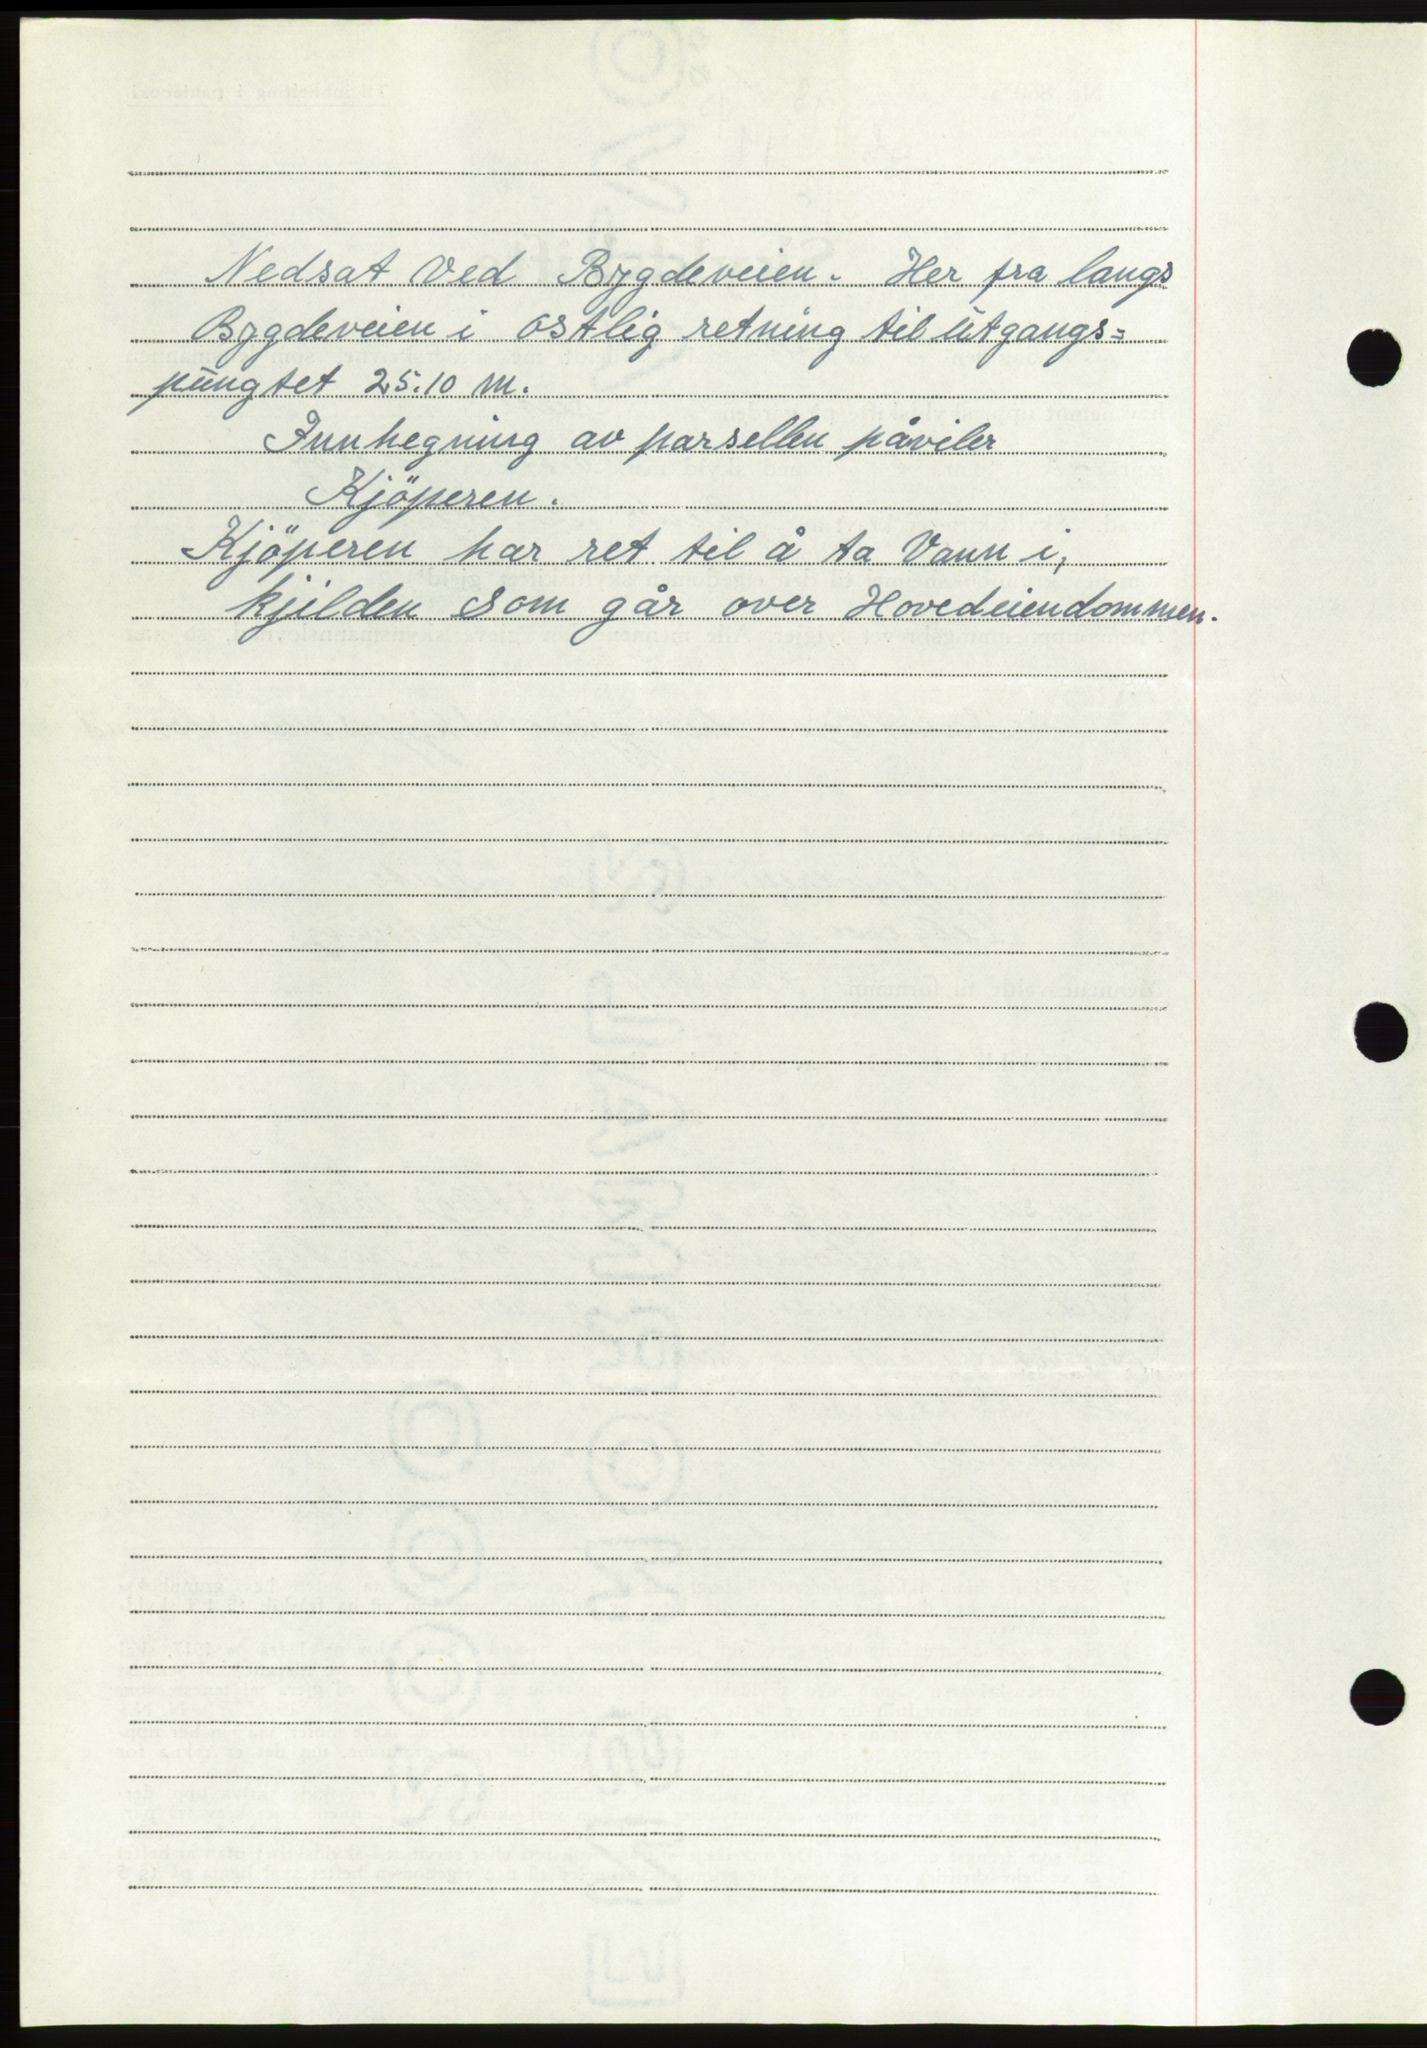 Nedsat ved Bygdeveien. Her fra langs
Bygdeveien i östlig retning til Utgangs=
pungtet 25.10 m.
Innhegning av parsellen påviler
Kjöperen.
Kjöperen har ret til å ta Vann i,
kjilden som går over Hovedeiendommen.